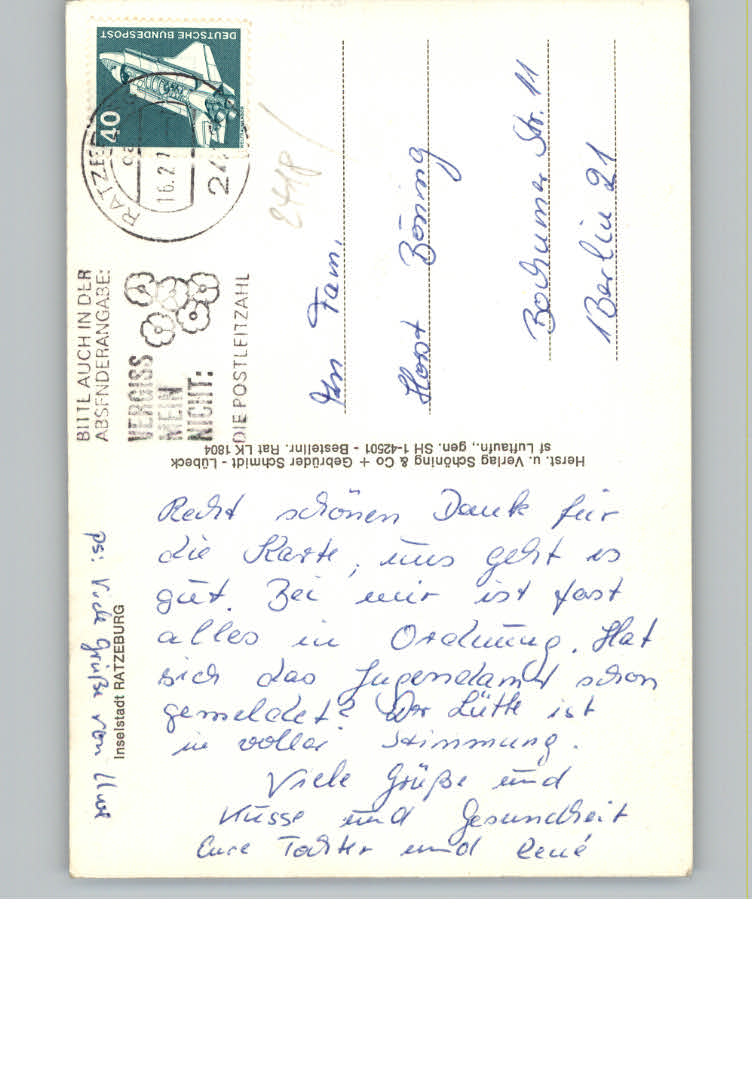 DEUTSCHE BUNDESPOST
40
RATZE
16.2.7
24
BITTE AUCH IN DER
ABSENDERANGABE:
VERGISS
MEIN
NICHT:
DIE POSTLEITZAHL
2418
An Fam.
Horst Böning
Bochumer Str. 11
1 Berlin 21
Herst. u. Verlag Schöning & Co + Gebrüder Schmidt - Lübeck
sf Luftaufn., gen. SH 1-42501 - Bestellnr. Rat LK 1804
Inselstadt RATZEBURG
Recht schönen Dank für
die Karte, uns geht es
gut. Bei mir ist fast
alles in Ordnung. Hat
sich das Jugendamt schon
gemeldet? Der Lütte ist
in voller Stimmung.
Viele Grüße und
Küsse und Gesundheit
Eure Tochter und René
ps: Viele Grüße von